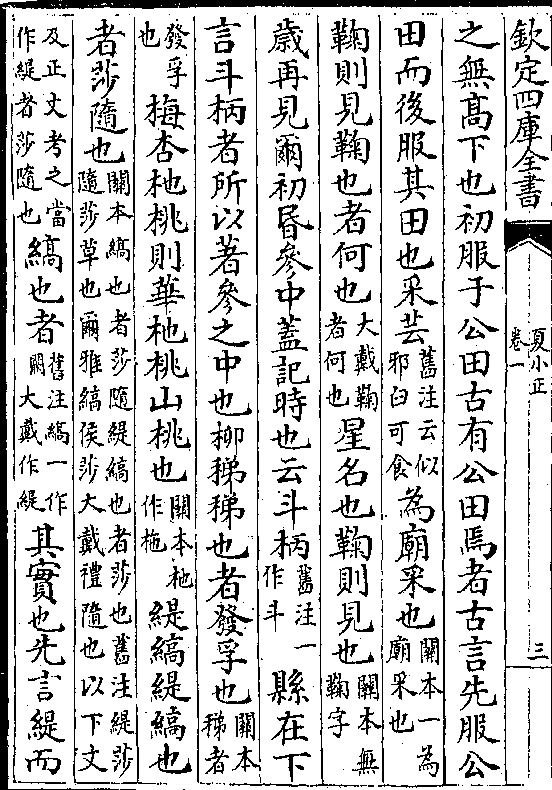 欽定四庫全書 夏小正 卷一 三
之無髙下也初服于公田古有公田焉者古言先服公
田而後服其田也采芸舊注云似邪臼可食為廟采也關本一為廟采也
鞠則見鞠也者何也大戴鞠者何也星名也鞠則見也關本無鞠字
歲再見爾初昏參中蓋記時也云斗柄舊注一作斗縣在下
言斗柄者所以著參之中也柳稊稊也者發孚也關本稊者
發孚也梅杏杝桃則華杝桃山桃也關本杝作柂緹縞緹縞也
者莎隨也關本縞也者莎隨緹縞也者莎也舊注緹莎隨莎草也爾雅縞侯莎大戴禮隨也以下文
及正文考之當作緹者莎隨也縞也者舊注縞一作關大戴作緹其實也先言緹而